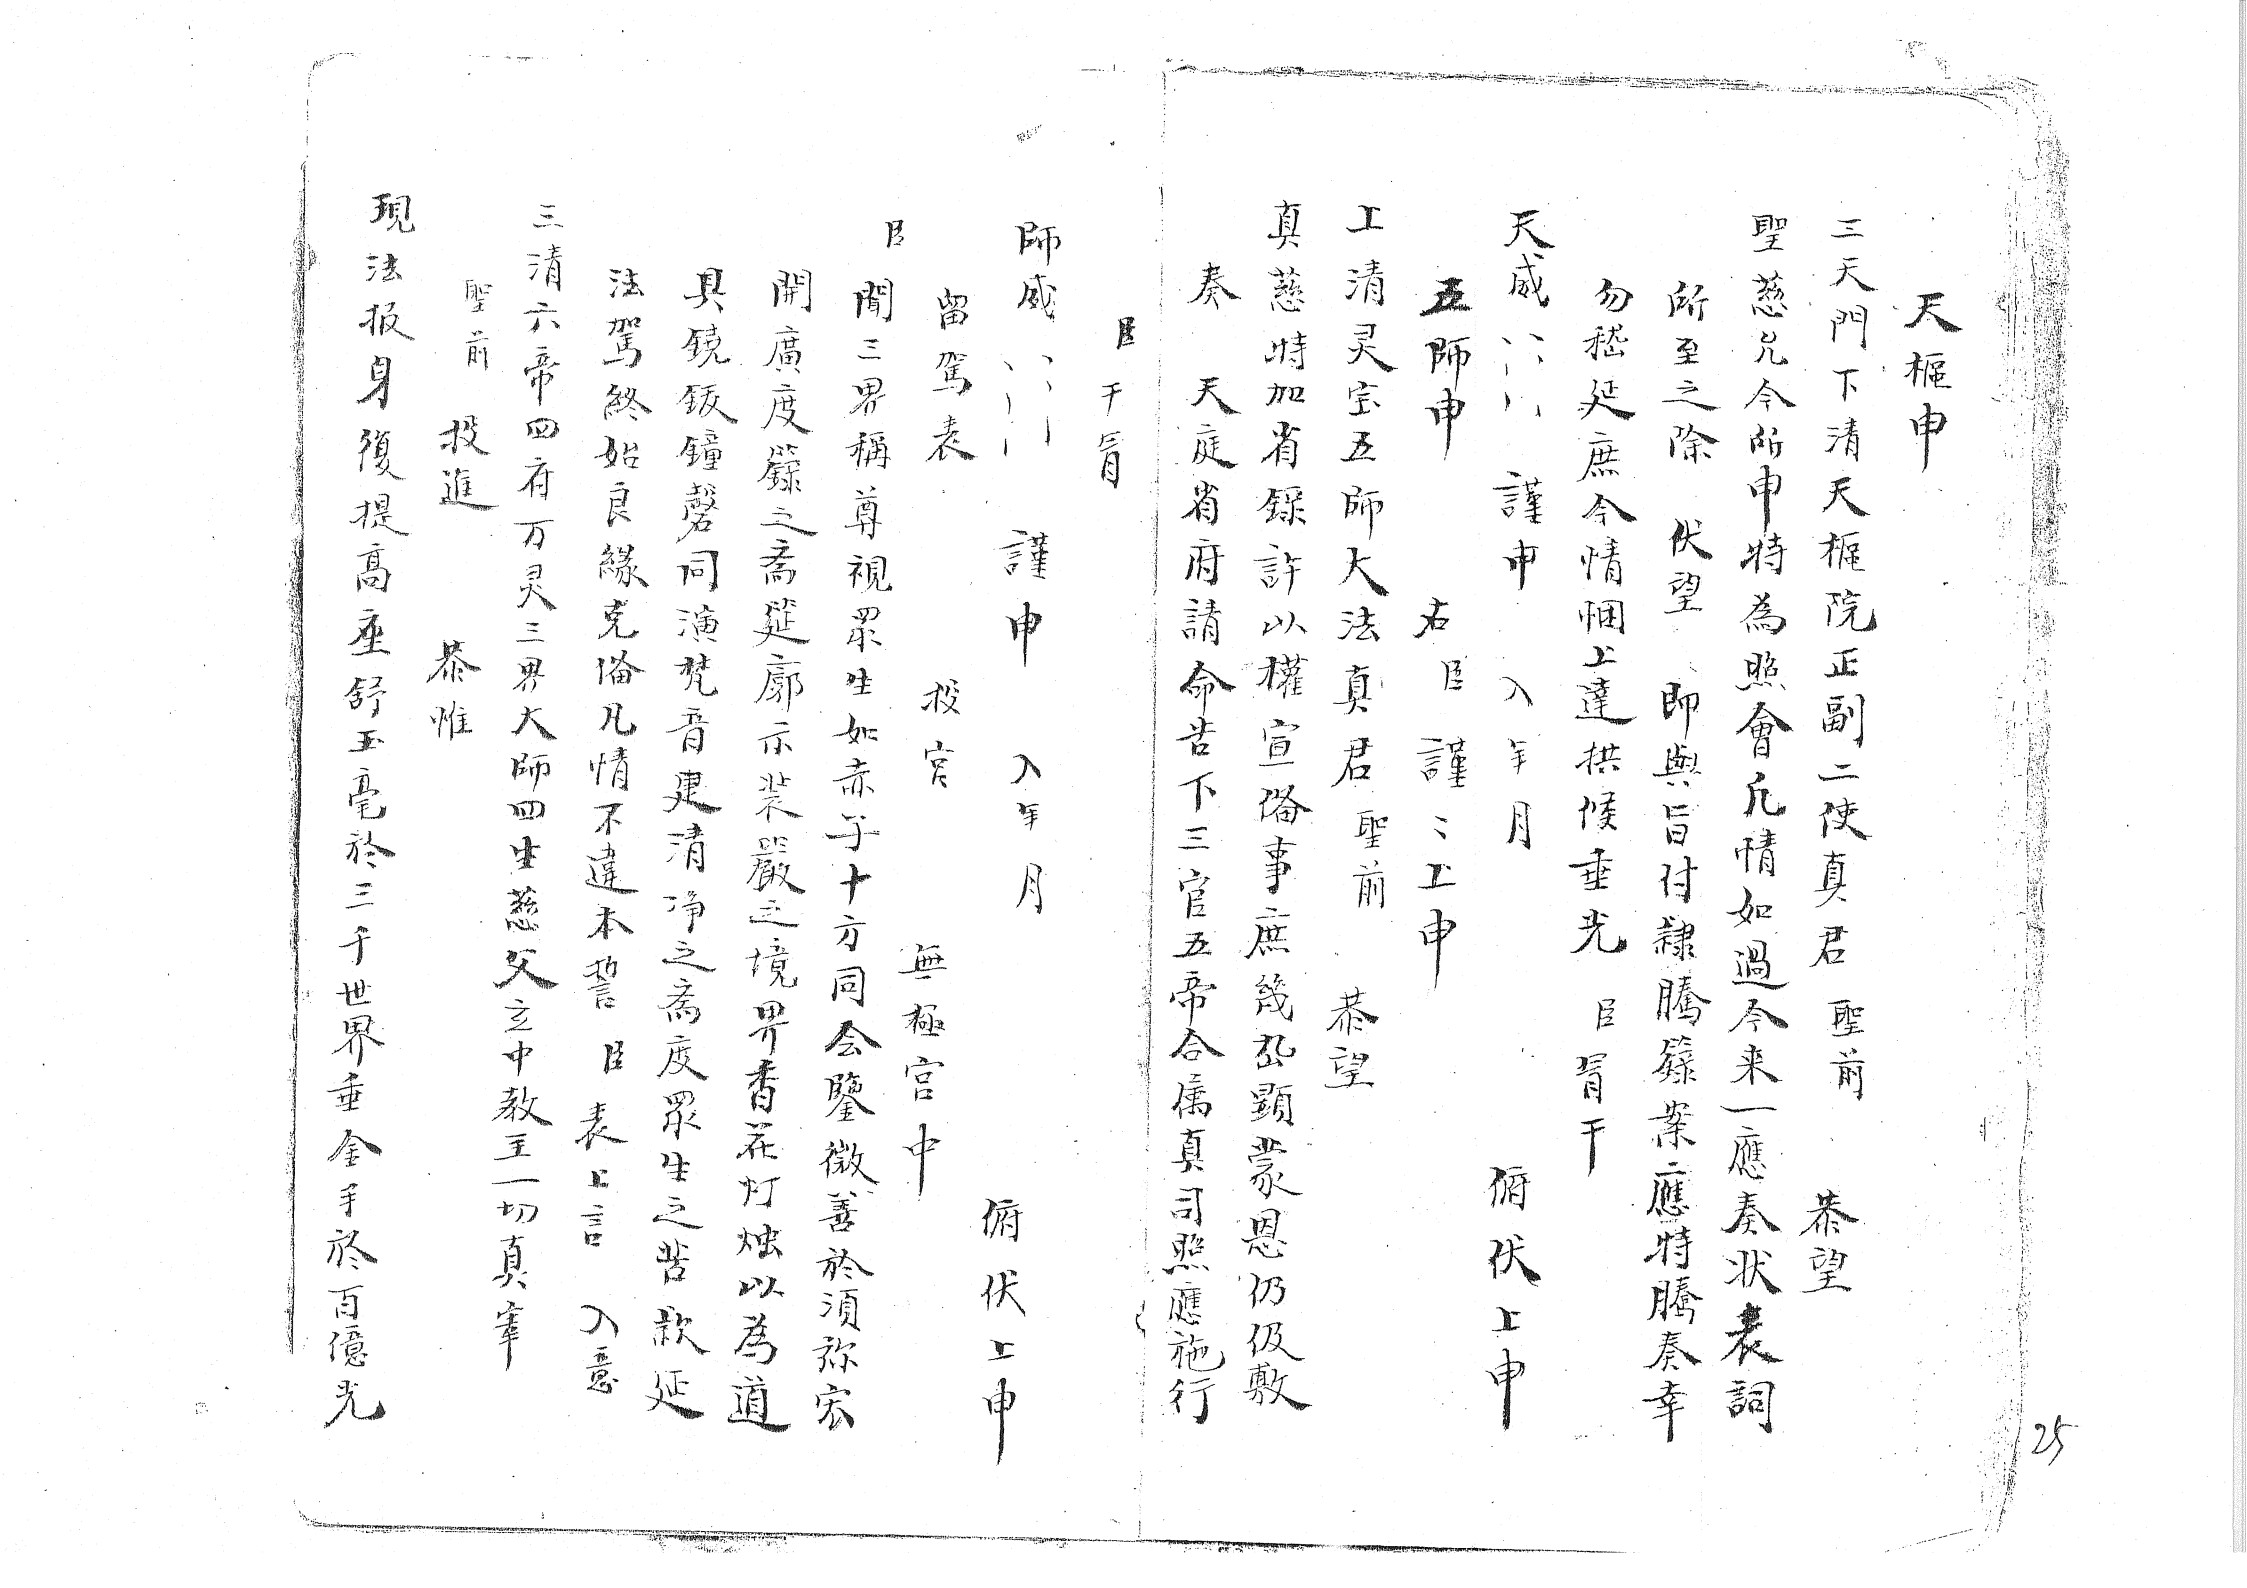 天樞申
三天門下清天樞院正副二使真君 聖前 恭望
聖慈允今所申特為照會凡情如過今来一應奏状表詞
所至之除 伏望 即與旨付隸騰籙案應特騰奏幸
勿嵇延庶今情悃上達拱候垂光 臣 胥干
天威 謹申 入年月 俯伏上申
五師申 右臣謹〻上申
上清灵宝五師大法真君 聖前 恭望
真慈特加省錄許以權宣俻事庶幾昭顯蒙恩仍伋敷
奏 天庭省府請命告下三官五帝合属真司照應施行
臣干胥
師威 謹申 入年月 俯伏上申
留駕表 投宫 無極宫中
臣聞三界稱尊視眾生如赤子十方同会鑒微善於須弥宏
開廣度籙之斋筵廓示裝嚴之境界香花灯烛以為道
具鐃鈸鐘磬同演梵音建清净之斋度眾生之苦欵延
法駕終始良緣克俻凡情不違本誓 臣表上言 入意
三清六帝四府万灵三界大師四生慈父玄中教主一切真宰
聖前 投進 恭惟
現法报身復提高座舒玉毫於三千世界垂金手於百億光
25